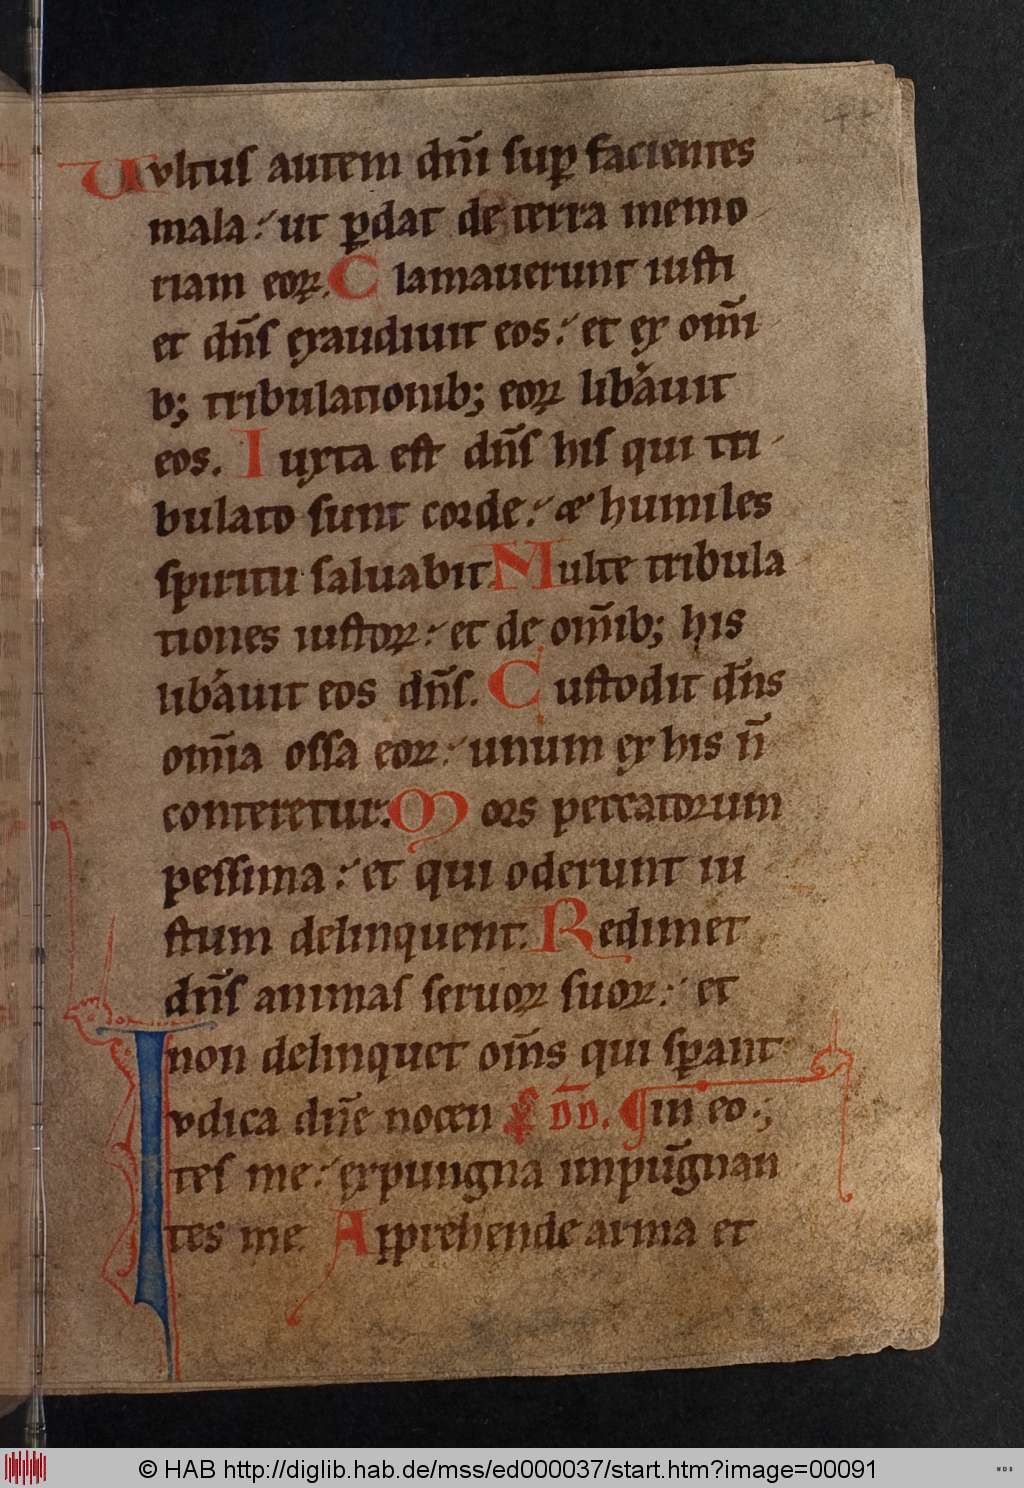 Uultus autem dn̄i sup̱ facientes
mala : ut p̱dat de terra memo
riam eoꝝ. Clamauerunt iusti
et dn̄s exaudiuit eos : et ex om̄i
b; tribulationib; eoꝝ lib̾auit
eos. Iuxta est dn̄s his qui tri
bulato sunt corde : & humiles
spiritu saluabit. Multe tribula
tiones iustoꝝ : et de om̄ib; his
lib̾auit eos dn̄s. Custodit dn̄s
om̄ia ossa eoꝝ : unum ex his n̄
conteretur. Mors peccatorum
pessima : et qui oderunt iu
stum delinquent. Redimet
dn̄s animas seruoꝝ suoꝝ : et
non delinquet om̄s qui sp̱ant
¶ in eo.;
Iudica dn̄e nocen p̄s DD.
tes me : expungna impūgnan
tes me. Apprehende arma et
© HAB http://diglib.hab.de/mss/ed000037/start.htm?image=00091